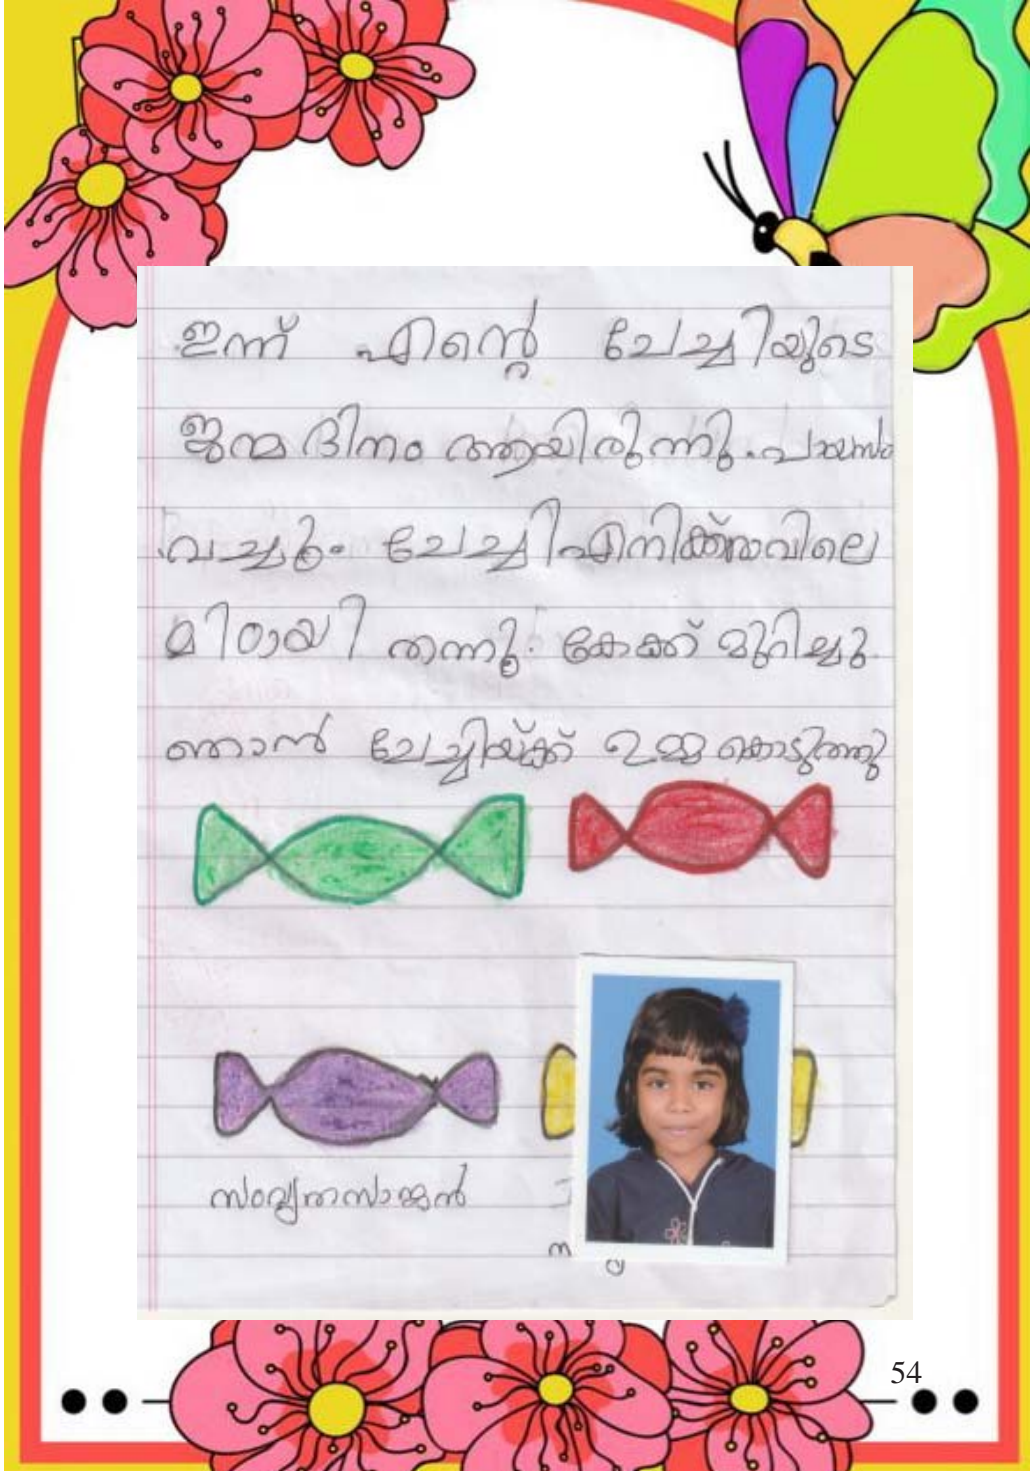 ഇന്ന് എന്റെ ചേച്ചിയുടെ
ജന്മ ദിനം ആയിരുന്നു. പായസം
വച്ചു. ചേച്ചി എനിക്ക് രാവിലെ
മിഠായി തന്നു. കേക്ക് മുറിച്ചു.
ഞാൻ ചേച്ചിയ്ക്ക് ഉമ്മ കൊടുത്തു
54